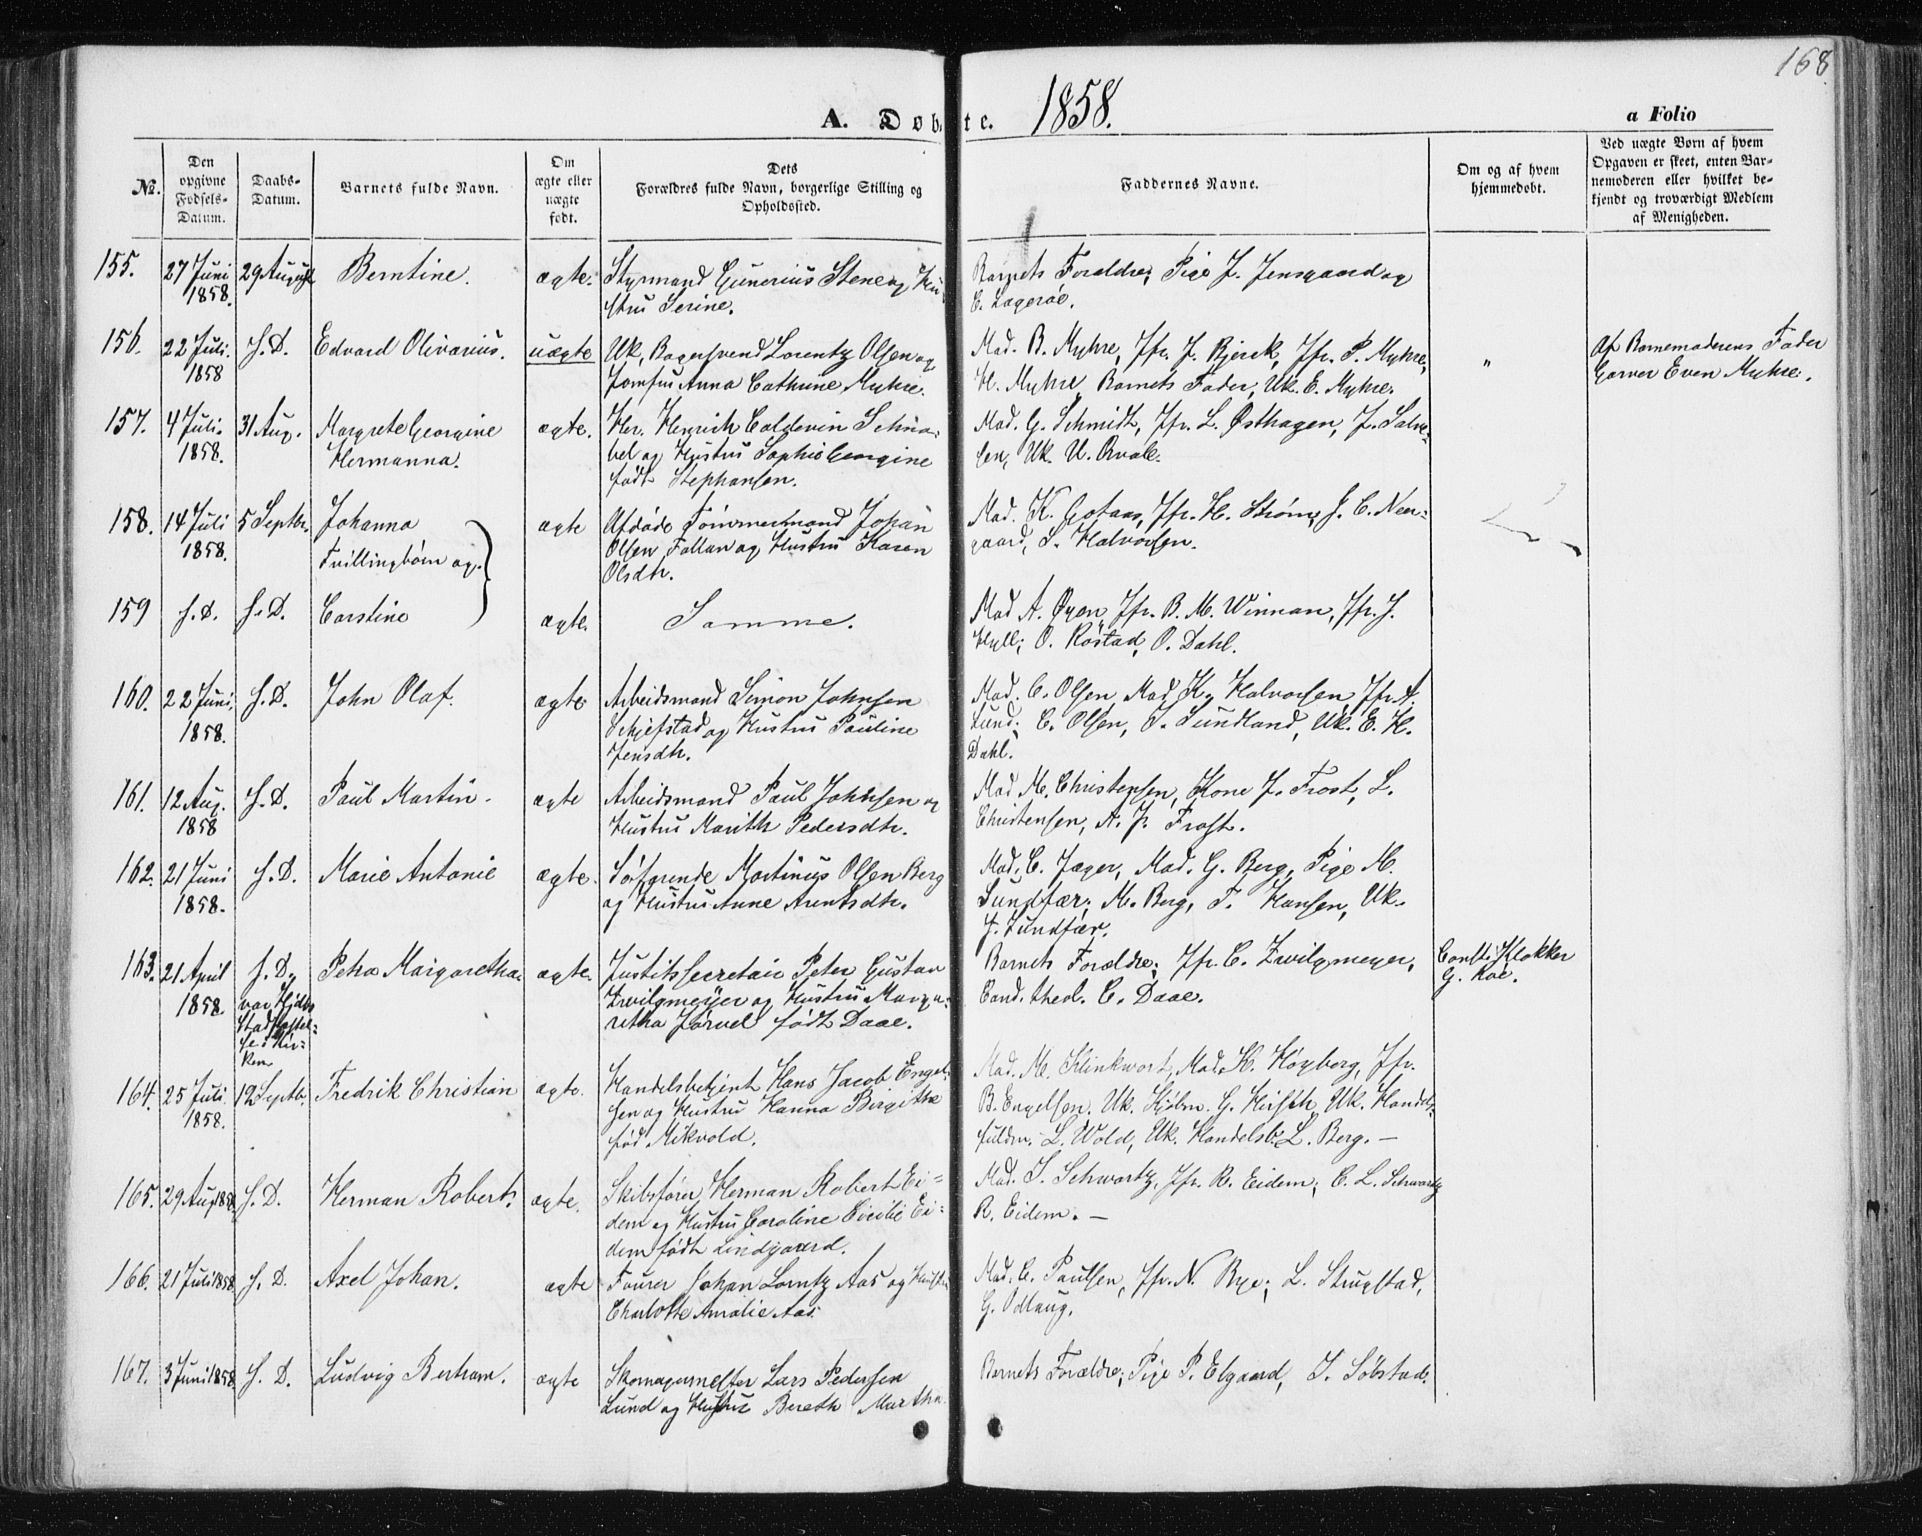 168
A. Døbte. 1858.
a Folio
No.
Den opgivne Fødsels-Datum.
Daabs-Datum.
Barnets fulde Navn.
Om ægte eller uægte født.
Dets Forældres fulde Navn, borgerlige Stilling og Opholdssted.
Faddernes Navne.
Om og af hvem hjemmedøbt.
Ved uægte Børn af hvem Opgaven er skeet, enten Barnemoderen eller hvilket bekjendt og troværdigt Medlem af Menigheden.
155. 27 Juni 1858. 29 August Berntine. ægte. Styrmand Gunerius Stene og Hustru Serine.
Barnets Forældre, Pige J. Jensgaard og
156. 22 Juli 1858 S. D. Edvard Olivarius. uægte Uk. Bagersvend Lorentz Olsen og
Jomfru Anna Cathrine Myhre.
Mad. B. Myhre, Jfr. J. Bjerck, Jfr. P. Myhre,
H. Myhre, Barnets Fader, Uk. E. Myhre.
"
Af Barnemoderens Fader
Garver Even Myhre.
157. 4 Juli 1858. 31 Aug. Margrete Georgine
Hermanna. ægte. Hr. Henrich Schnabel og Hustru Sophie Georgine
født Stephansen.
Mad. G. Schmidt, Jfr. L. Østhagen,
158. 14 Juli 1858. 5 Septbr. Johanna
Tvillingbørn og
ægte Afdøde Tømmermand Johan
Olsen Fallan og Hustru Karen
Olsdtr.
Mad. K. Gotaas, Jfr. H. Strøm, J. C. Neergaard, S. Halvorsen.
159 S. D. S. D. Carstine ægte. Samme.
Mad. A. Øyen, Jfr. B. M. Winnan, Jfr. J.
O. Røstad, O. Dahl.
160. 22 Juni 1858. S. D. John Olaf. ægte Arbeidsmand Simon Johnsen
Schjefstad og Hustru Pauline
Jensdtr.
Mad. C. Olsen, Mad. K. Halvorsen, Jfr. A.
Lund; C. Olsen, Sundland, Uk. E. H.
Dahl.
161. 12 Aug. 1858 S. D. Paul Martin. ægte Arbeidsmand Paul Johnsen og
Hustru Marith Pedersdtr.
Mad. M. Christensen, Kone J. Frost, L.
Christensen, A. J. Frost.
162. 21 Juni 1858. S. D. Marie Antonie ægte. Søfarende Martinus Olsen Berg
og Hustru Anne Arentsdtr.
Mad. C. Jæger, Mad. G. Berg, Pige M.
Sundfær; M. Berg, T. Hansen, Uk.
J. Sundfær.
163. 21 April 1858 S. D.
var Hjdbs
Stadfæstelse i Kirken
Petra Margaretha ægte. Justitssecretair Peter Gustav
Zwilgmeyer og Hustru Margaretha Jørvel født Daae.
Barnets Forældre; Jfr. C. Zwilgmeyer,
Cand. theol. C. Daae.
Const. Klokker
G. Roe.
164. 25 Juli 1858. 12 Septbr. Fredrik Christian ægte. Handelsbetjent Hans Jacob Engelsen og Hustru Hanna Birgitte
fød. Mikvold.
Mad. M. Klinkwort, Mad. H. Høyberg, Jfr.
B. Engelsen. Uk. Kjøbm. G. Hirsch, Uk. Handelsfuldm. L. Wold, Uk. Handelsb. L. Berg. —
165. 29 Aug 1858 S. D. Herman Robert. ægte. Skibsfører Herman Robert Eidem og Hustru Caroline Cecilie Eidem født Lindgaard.
Mad. S. Schwartz, Jfr. R. Eidem; C. L. Schwartz
R. Eidem. —
166. 21 Juli 1858 S. D. Axel Johan. ægte Fourer Johan Lorntz Aas og Hustru
Charlotte Amalie Aas
Mad. C. Paulsen, Jfr. N. Bye; L. Strugstad,
G. Odlaug.
167. 3 Juni 1858 S. D. Ludvig Bertram. ægte Skomagermester Lars Pedersen
Lund og Hustru Bereth Martha
Barnets Forældre; Pige P. Elgaard, S. Søbstad.